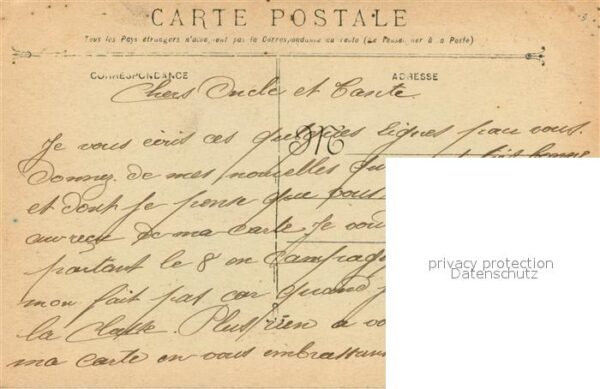 CARTE POSTALE
Tous les Pays étrangers n'acceptent pas la Correspondance au recto (Se renseigner à la Poste)
CORRESPONDANCE
ADRESSE
M
Chers Oncle et Tante.
Je vous écris ces quelques lignes pour vous
donnez de mes nouvelles qui sont fort bonne
et dont je pense que vous
au reçu de ma carte Je vou
partant le 8 en Campagn
mon fait pas car quand j
la Classe. Plus rien a vo
ma carte en vous embrassant
privacy protection
Datenschutz